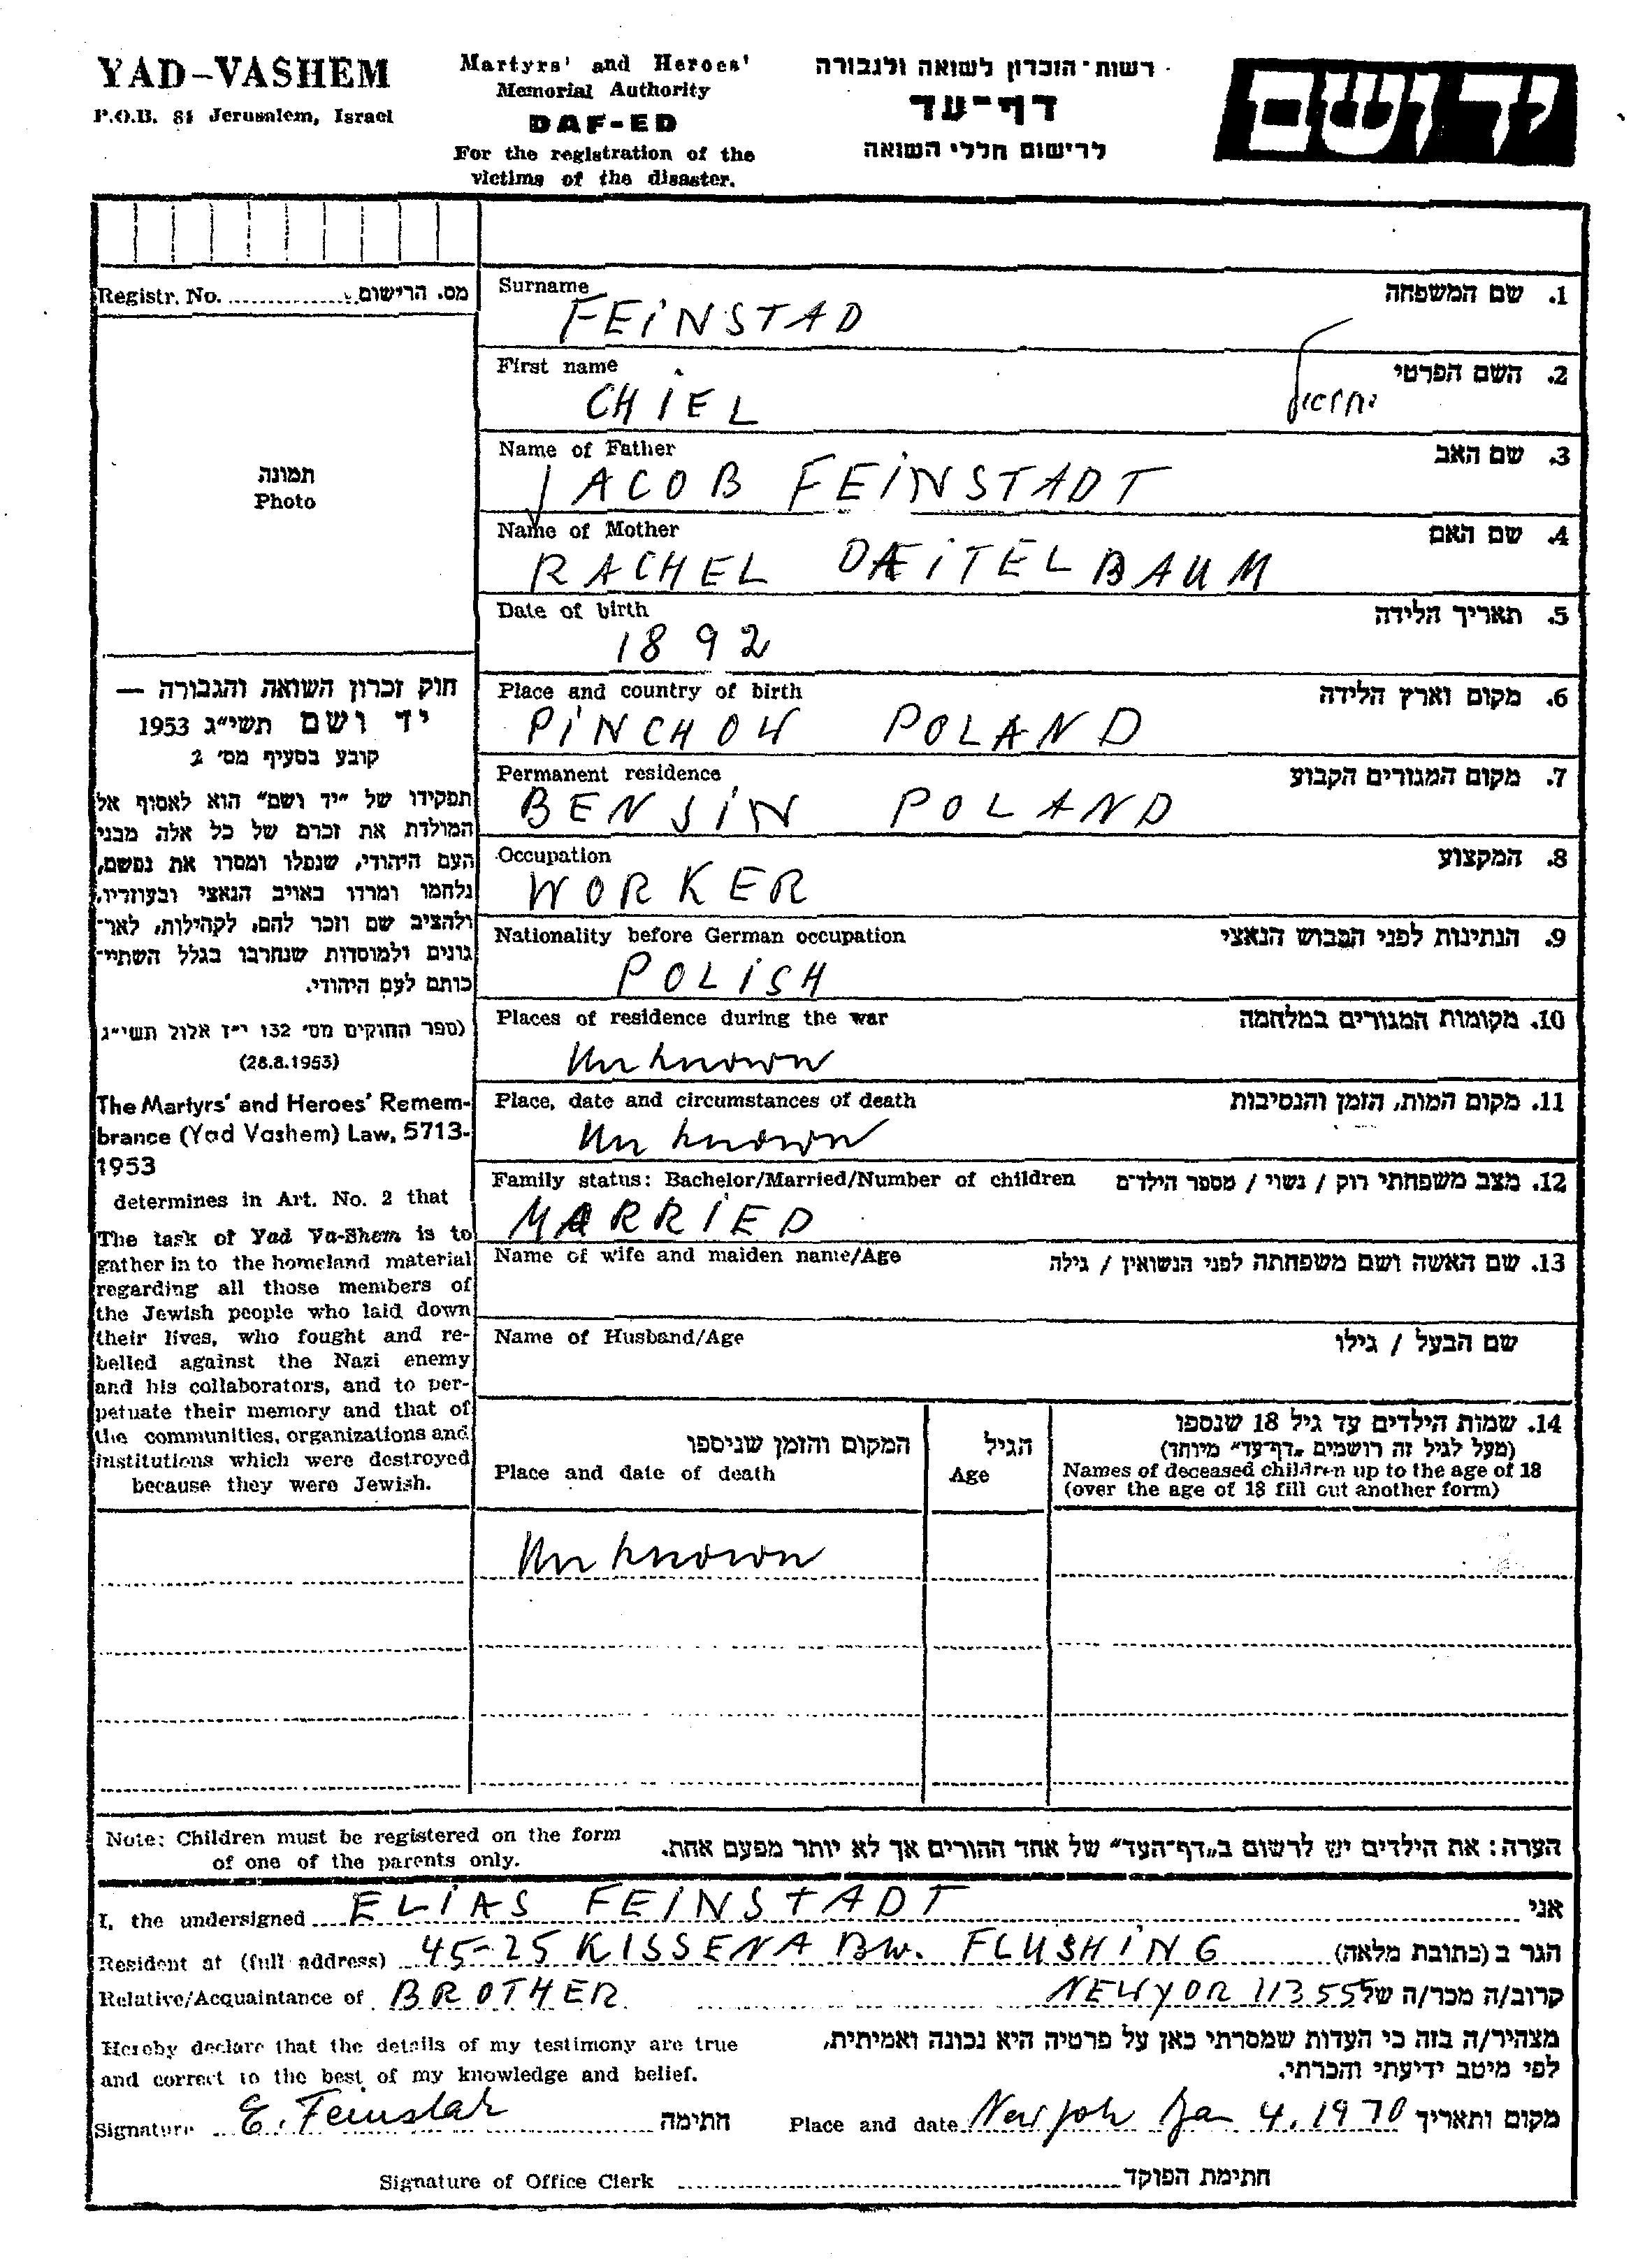 YAD-VASHEM
P.O.B. 84 Jerusalem, Israel
Martyrs' and Heroes'
Memorial Authority
DAF-ED
For the registration of the
victims of the disaster.
רשות־הזכרון לשואה ולגבורה
דף־עד
לרישום חללי השואה
יד ושם
Registr. No. מס. הרישום
תמונה
Photo
חוק זכרון השואה והגבורה —
יד ושם תשי״ג 1953
קובע בסעיף מס׳ 2
תפקידו של ״יד ושם״ הוא לאסוף אל
המולדת את זכרם של כל אלה מבני
העם היהודי, שנפלו ומסרו את נפשם,
נלחמו ומרדו באויב הנאצי ובעוזריו,
ולהציב שם וזכר להם, לקהילות, לאר־
גונים ולמוסדות שנחרבו בגלל השתיי־
כותם לעם היהודי.
(ספר החוקים מס׳ 132 י״ז אלול תשי״ג
(28.8.1953)
The Martyrs' and Heroes' Remem-
brance (Yad Vashem) Law, 5713-
1953
determines in Art. No. 2 that
The task of Yad Va-Shem is to
gather in to the homeland material
regarding all those members of
the Jewish people who laid down
their lives, who fought and re-
belled against the Nazi enemy
and his collaborators, and to per-
petuate their memory and that of
the communities, organizations and
institutions which were destroyed
because they were Jewish.
Surname 1. שם המשפחה
FEINSTAD
First name 2. השם הפרטי
CHIEL יחיאל
Name of Father 3. שם האב
JACOB FEINSTADT
Name of Mother 4. שם האם
RACHEL DAEITELBAUM
Date of birth 5. תאריך הלידה
1892
Place and country of birth 6. מקום וארץ הלידה
PINCHOW POLAND
Permanent residence 7. מקום המגורים הקבוע
BENSIN POLAND
Occupation 8. המקצוע
WORKER
Nationality before German occupation 9. הנתינות לפני הכבוש הנאצי
POLISH
Places of residence during the war 10. מקומות המגורים במלחמה
Unknown
Place, date and circumstances of death 11. מקום המות, הזמן והנסיבות
Unknown
Family status: Bachelor/Married/Number of children 12. מצב משפחתי רוק / נשוי / מספר הילדים
MARRIED
Name of wife and maiden name/Age 13. שם האשה ושם משפחתה לפני הנשואין / גילה
Name of Husband/Age שם הבעל / גילו
14. שמות הילדים עד גיל 18 שנספו
(מעל לגיל זה רושמים „דף־עד״ מיוחד)
Names of deceased children up to the age of 18
(over the age of 18 fill out another form)
הגיל
Age
המקום והזמן שניספו
Place and date of death
Unknown
Note: Children must be registered on the form
of one of the parents only.
הערה: את הילדים יש לרשום ב„דף־העד״ של אחד ההורים אך לא יותר מפעם אחת.
I, the undersigned ELIAS FEINSTADT אני
Resident at (full address) 45-25 KISSENA BW. FLUSHING הגר ב (כתובת מלאה)
Relative/Acquaintance of BROTHER NEWYOR 11355 קרוב/ה מכר/ה של
Hereby declare that the details of my testimony are true
and correct to the best of my knowledge and belief.
מצהיר/ה בזה כי העדות שמסרתי כאן על פרטיה היא נכונה ואמיתית,
לפי מיטב ידיעתי והכרתי.
Signature E. Feinstadt חתימה Place and date New York Jan 4. 1970 מקום ותאריך
Signature of Office Clerk חתימת הפוקד